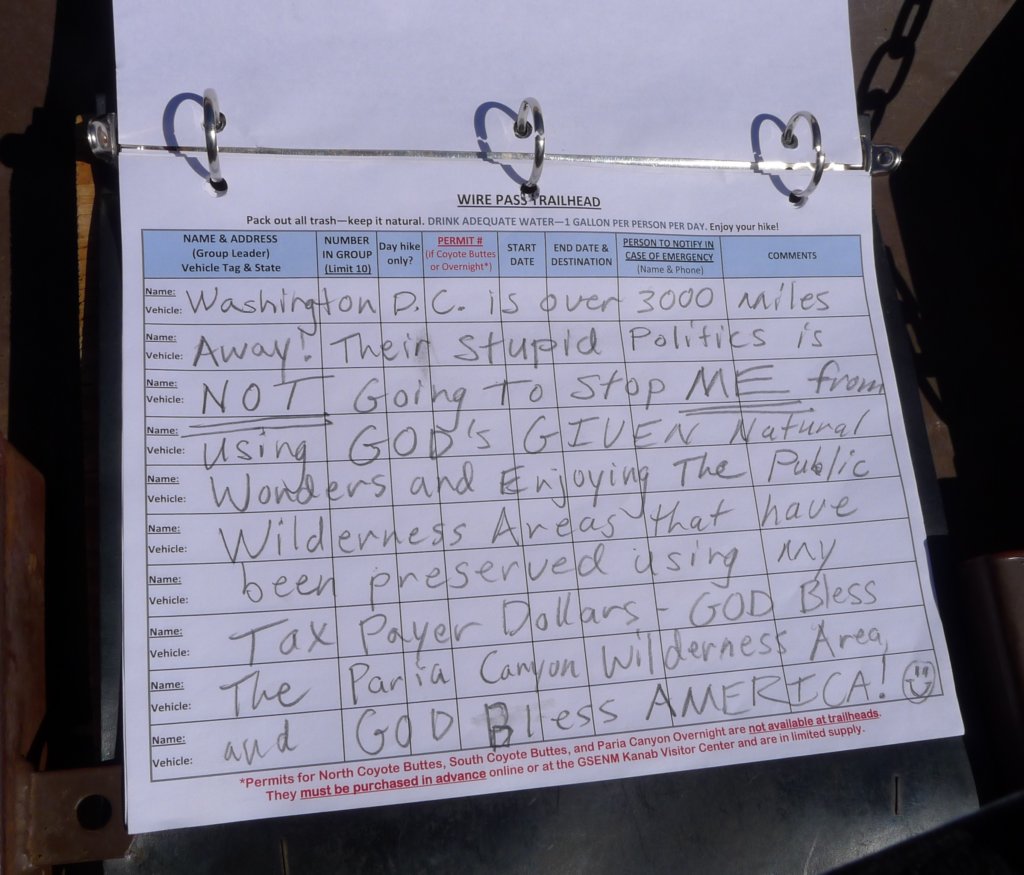 WIRE PASS TRAILHEAD
Pack out all trash—keep it natural. DRINK ADEQUATE WATER—1 GALLON PER PERSON PER DAY. Enjoy your hike!
NAME & ADDRESS
(Group Leader)
Vehicle Tag & State
NUMBER
IN GROUP
(Limit 10)
Day hike
only?
PERMIT #
(if Coyote Buttes
or Overnight*)
START
DATE
END DATE &
DESTINATION
PERSON TO NOTIFY IN
CASE OF EMERGENCY
(Name & Phone)
COMMENTS
Name:
Vehicle:
Washington D.C. is over 3000 miles
Name:
Vehicle:
Away! Their Stupid Politics is
Name:
Vehicle:
NOT Going To Stop ME from
Name:
Vehicle:
using GOD's GIVEN Natural
Name:
Vehicle:
Wonders and Enjoying The Public
Name:
Vehicle:
Wilderness Areas that have
Name:
Vehicle:
been preserved using my
Name:
Vehicle:
Tax Payer Dollars - GOD Bless
Name:
Vehicle:
The Paria Canyon Wilderness Area,
Name:
Vehicle:
and GOD Bless AMERICA!
*Permits for North Coyote Buttes, South Coyote Buttes, and Paria Canyon Overnight are not available at trailheads.
They must be purchased in advance online or at the GSENM Kanab Visitor Center and are in limited supply.